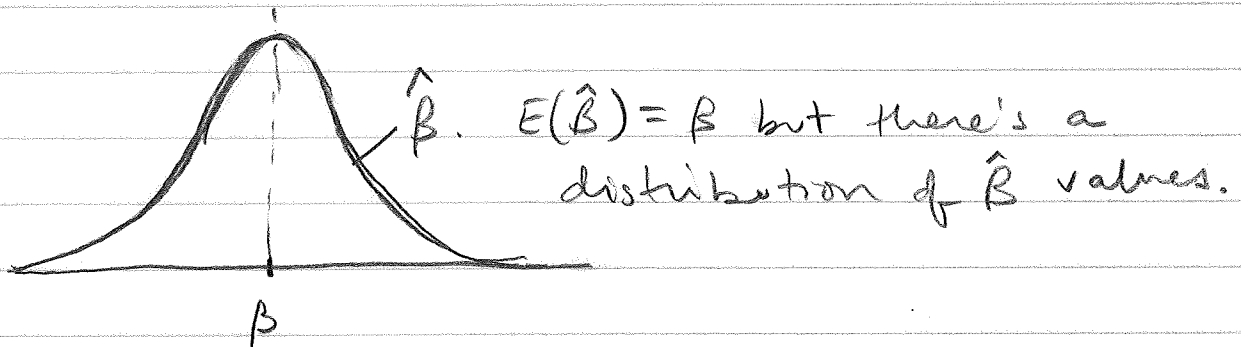 β̂. E(β̂) = β but there's a
distribution of β̂ values.
β